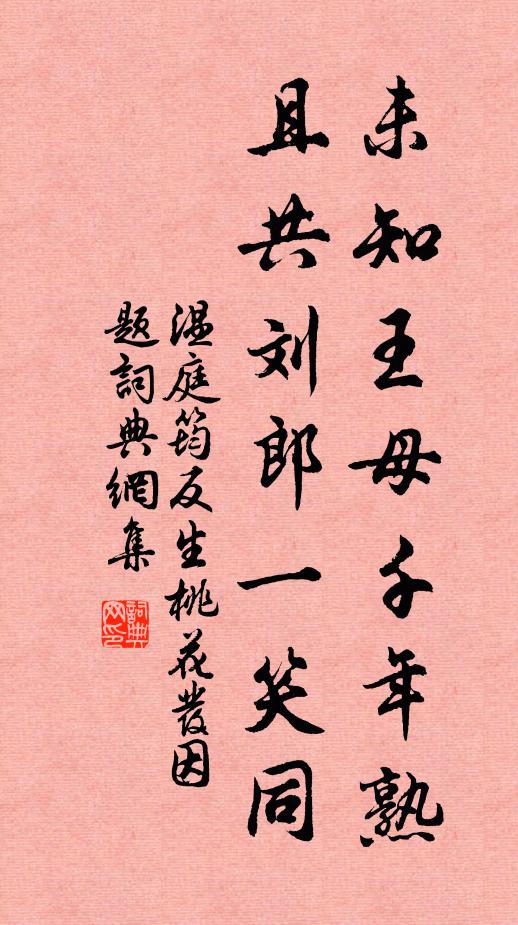 未知王母千年熟
且共刘郎一笑同
温庭筠反生桃花發因
题詞典網集
詞典网印